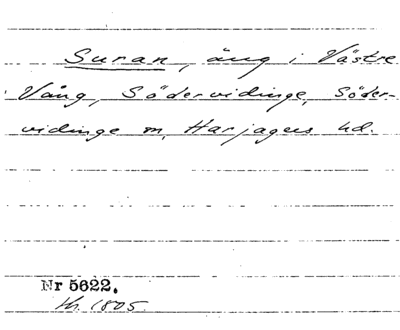 Suran, äng i Västre
Vång, Södervidinge, Söder-
vidinge sn, Harjagers hd.
Nr 5622.
1805.